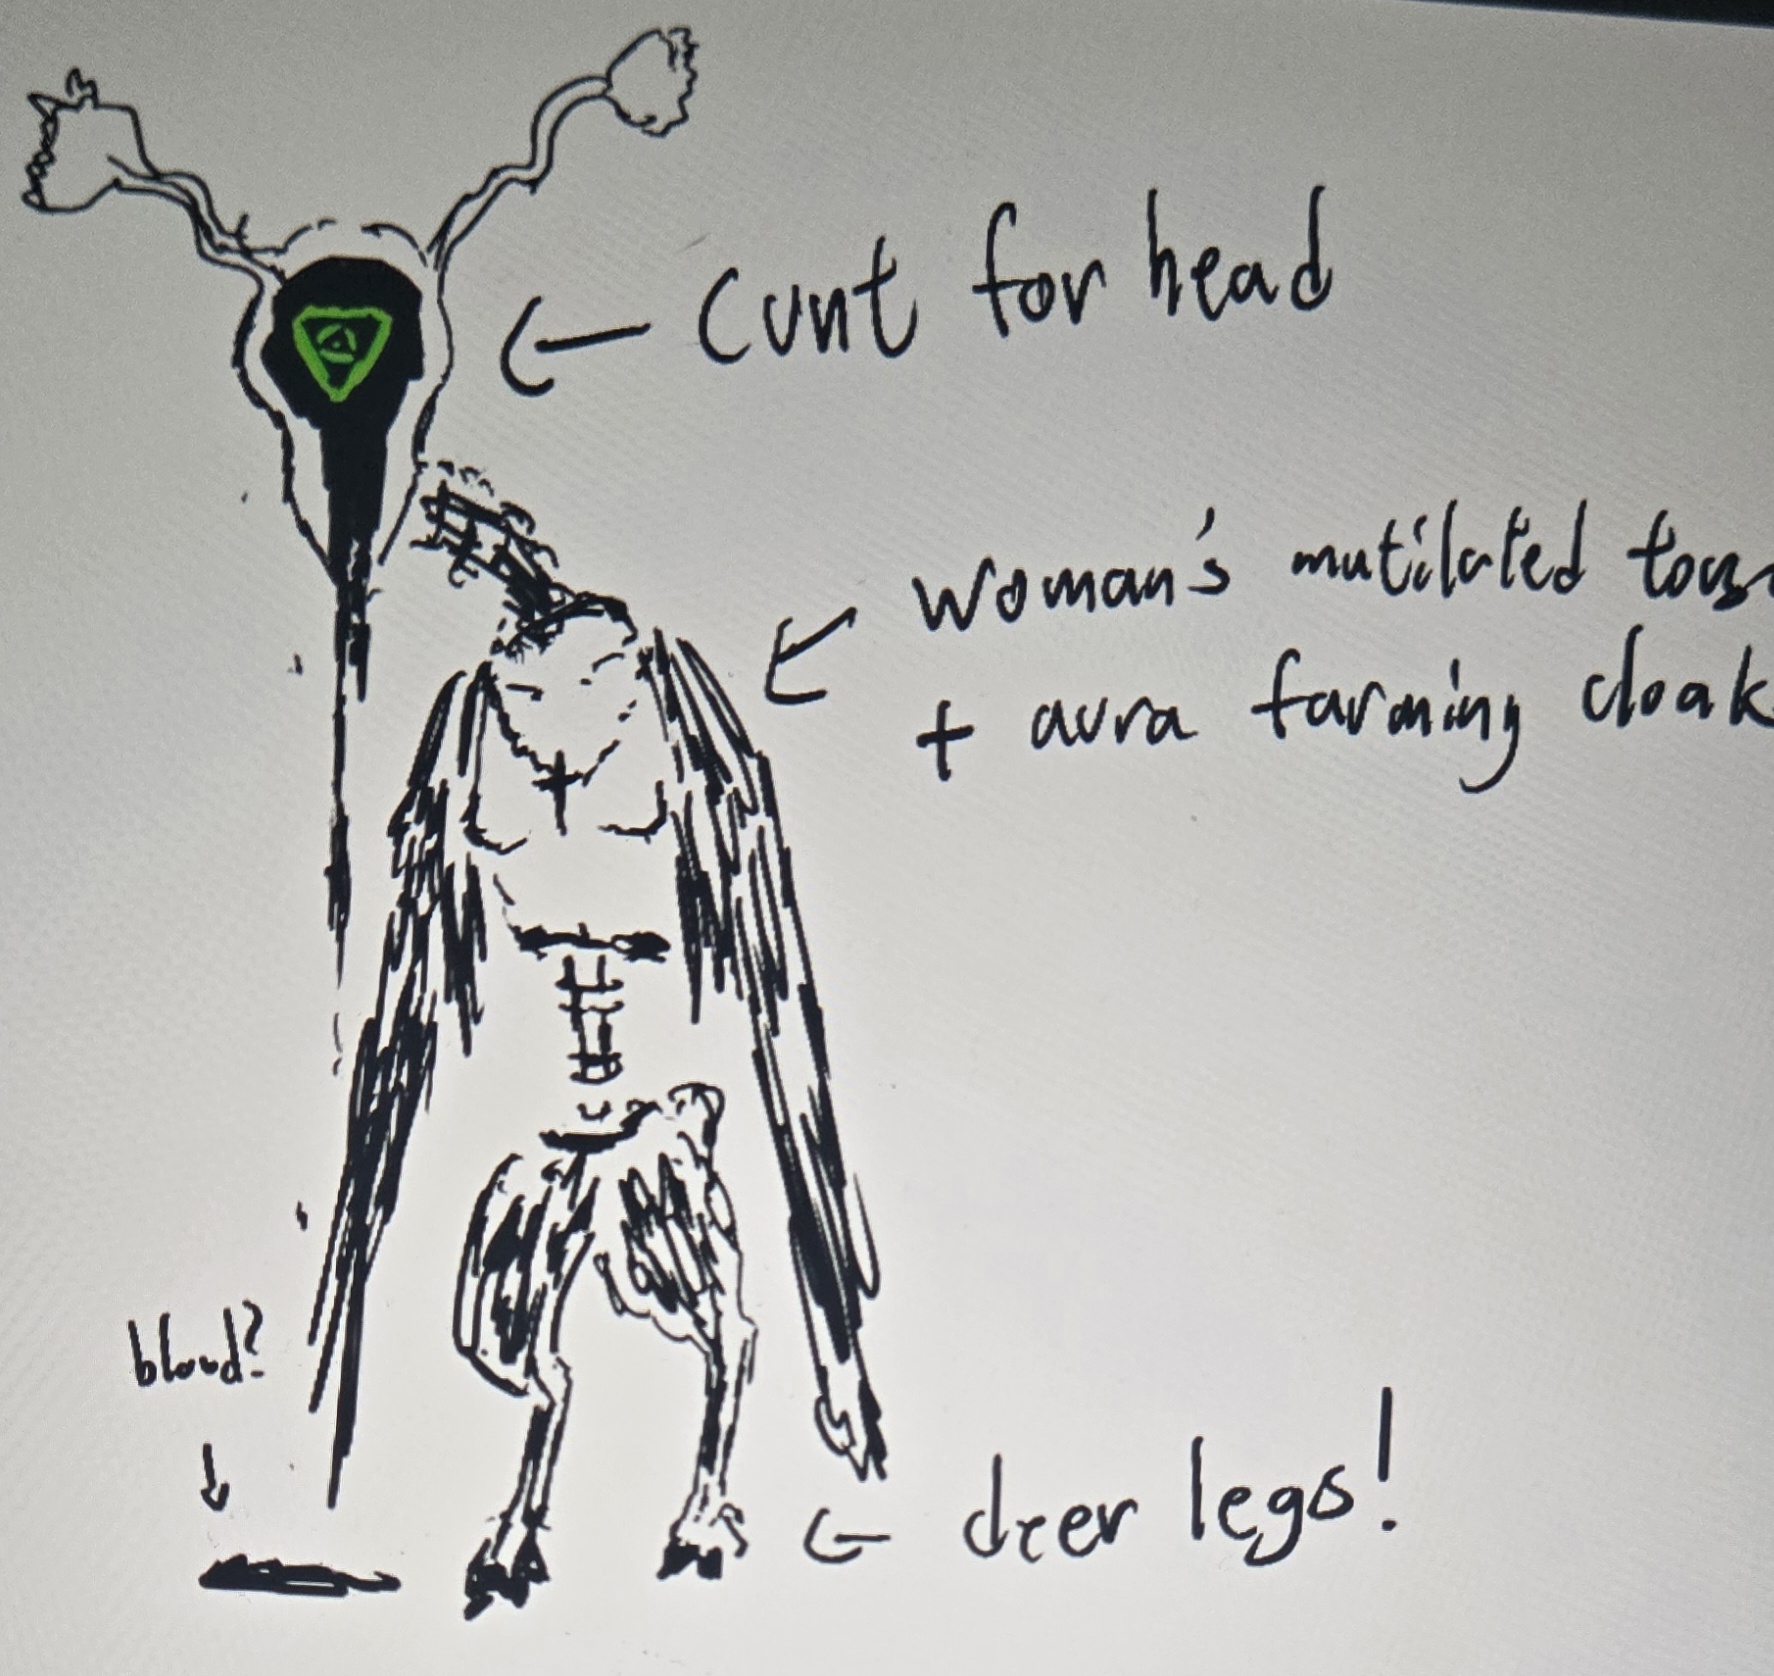 cunt for head
woman's mutilated
+ aura farming cloak
blood?
deer legs!